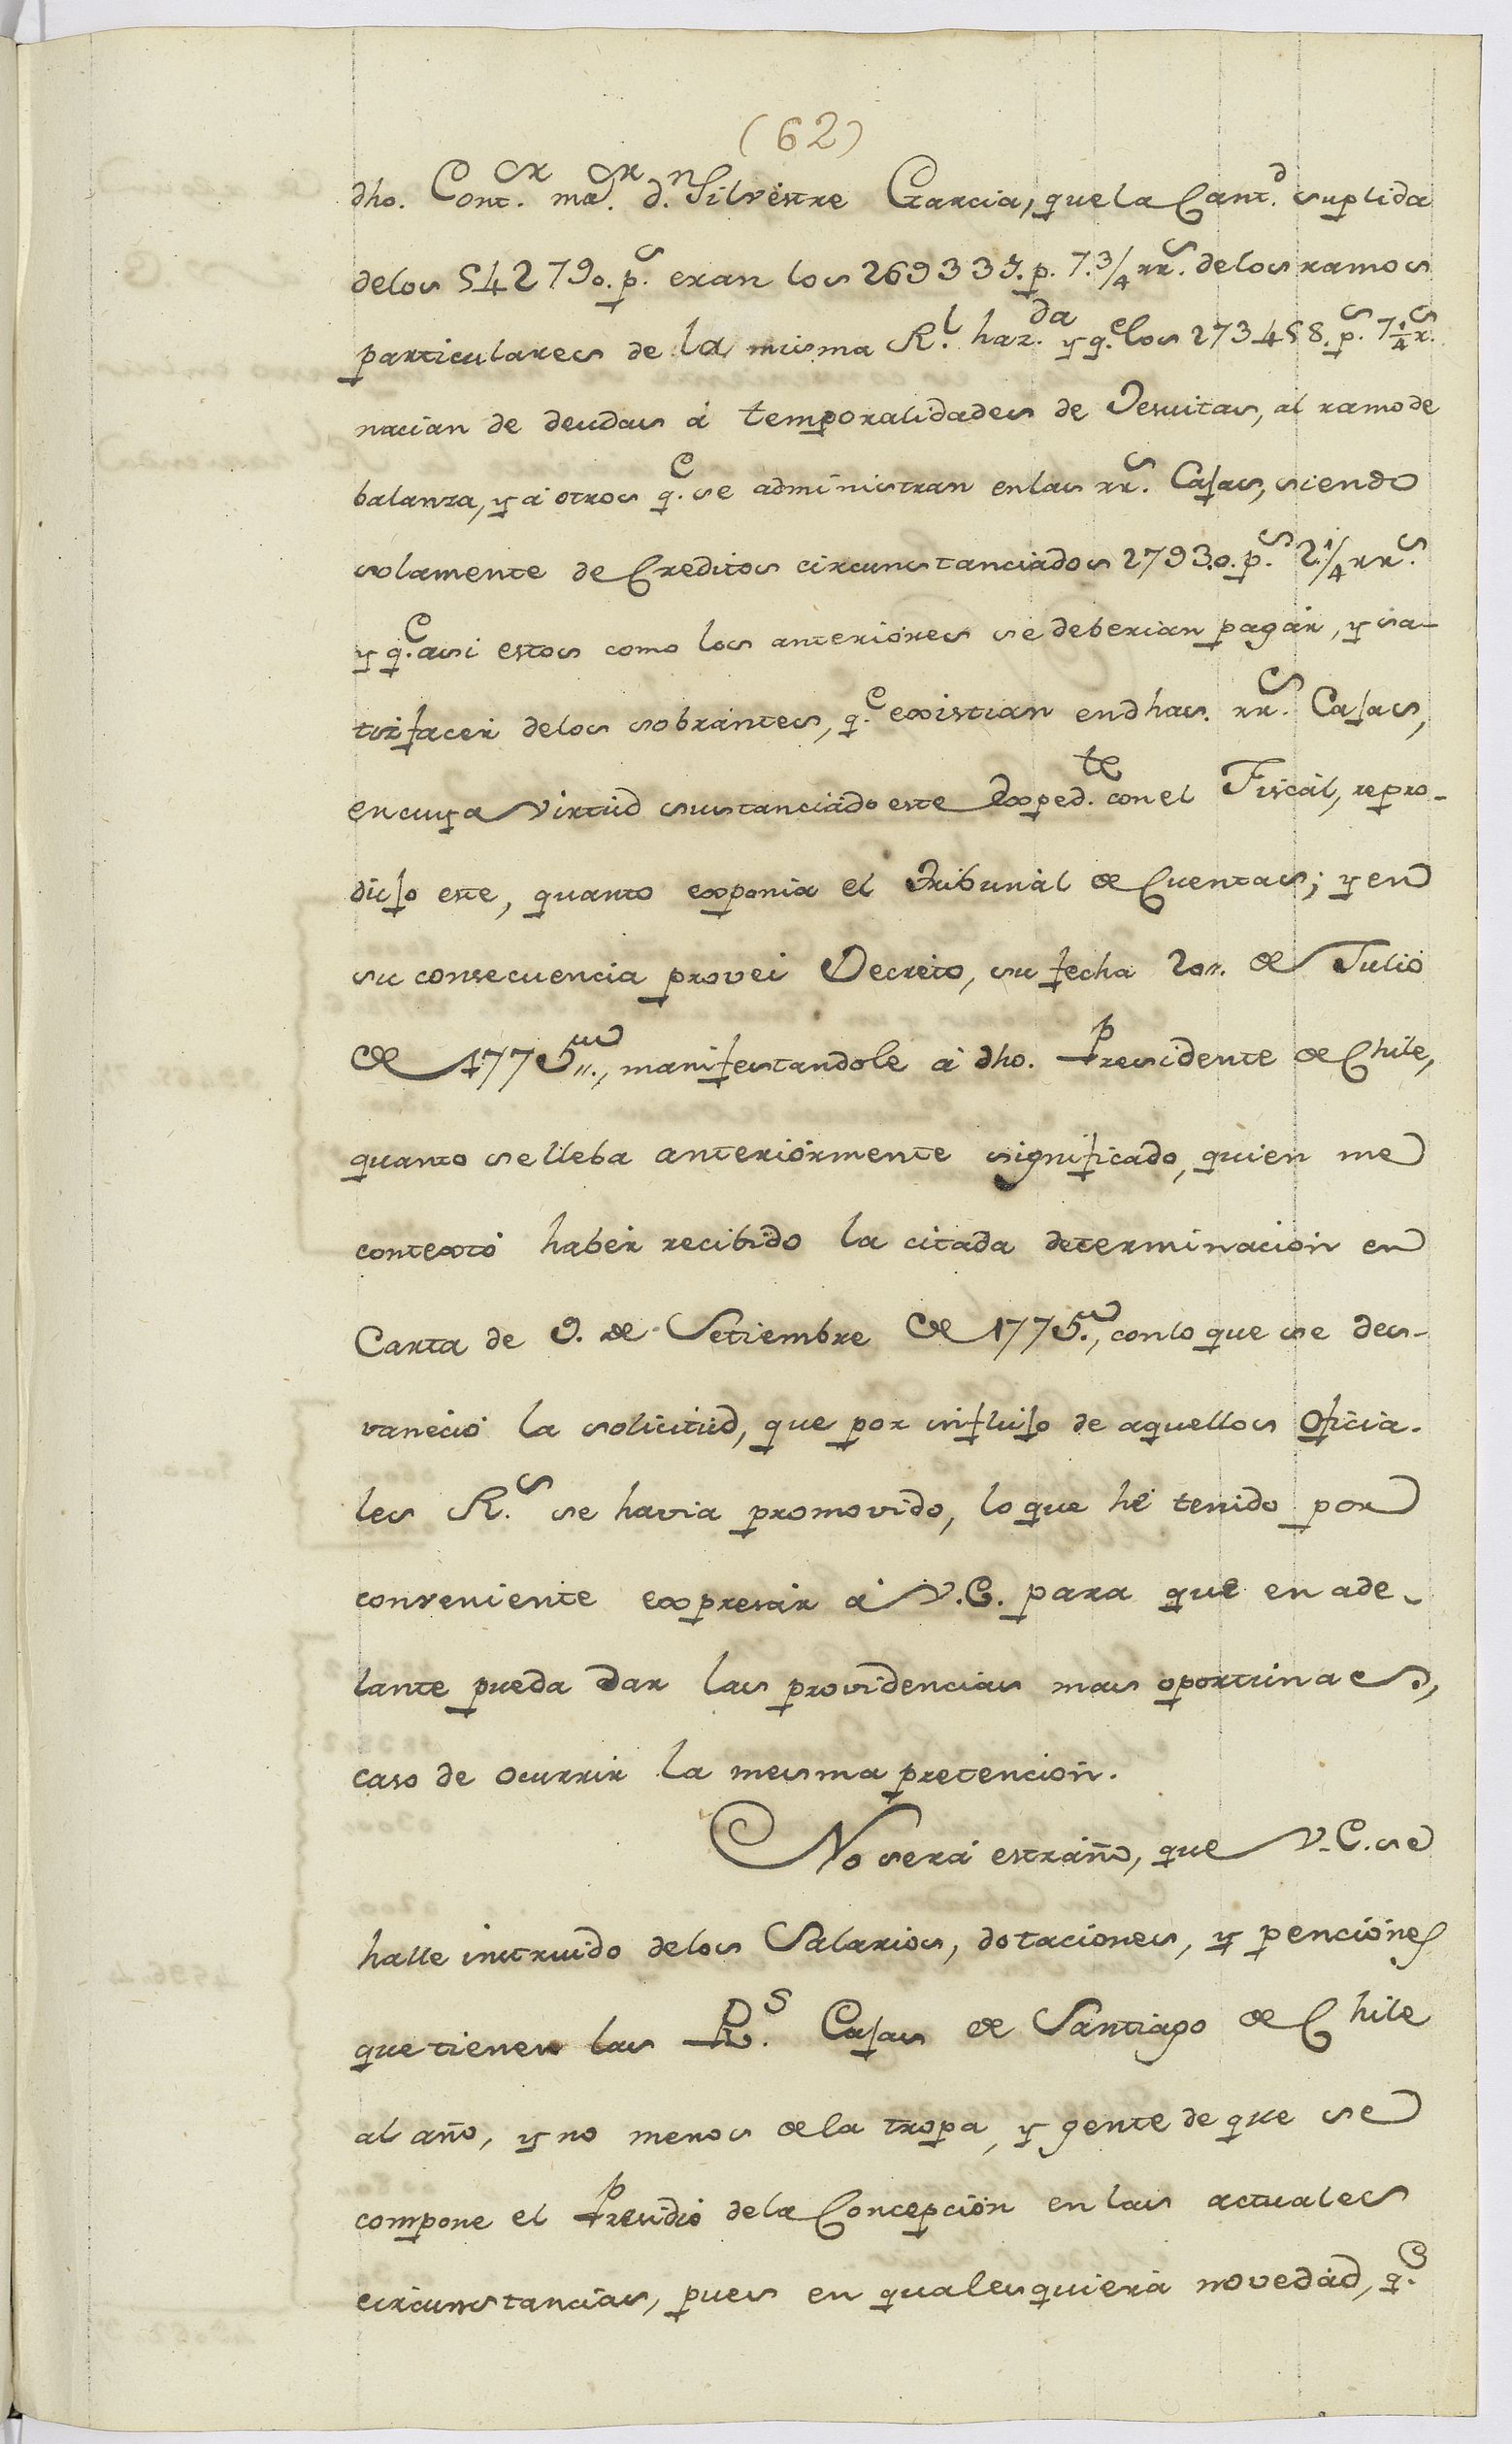 (62)
dho. Cont.or ma.or d.n Silvestre Garcia, que la Cant.d suplida
delos 542790. p.s eran los 269337. p. 7.3/4 rr.s delos ramos
particulares de la misma R.l haz.da y q.e los 273458. p.s 7 1/4 r.s
nacian de deudas á temporalidades de Jesuitas, al ramo de
balanza, y á otros q.e se administran enlas rr.s Cajas, siendo
solamente de Creditos circunstanciados 2793.0. p.s 2.1/4 rr.s
y q.e asi estos como los anteriores se deberian pagar, y sa-
tisfacer delos sobrantes, q.e existian en dhas. rr.s Cajas,
en cuya virtud sustanciado este Exped.te con el Fiscal, repro-
dujo este, quanto exponia el Tribunal de Cuentas; y en
su consecuencia provei Decreto, su fecha 20,, de Julio
de 1775,,, manifestandole á dho. Presidente de Chile,
quanto se lleba anteriormente significado, quien me
contextó haber recibido la citada determinacion en
Carta de 9. de Setiembre de 1775., con lo que se des-
vaneció la solicitud, que por influjo de aquellos oficia-
les R.s se havia promovido, lo que hé tenido por
conveniente expresar á V.E. para que en ade-
lante pueda dar las providencias mas oportunas.,
caso de ocurrir la mesma pretencion.
No será estraño, que V.E. se
halle instruido delos Salarios, dotaciones, y penciones
que tienen las R.s Cajas de Santiago de Chile
al año, y no menos de la tropa, y gente de que se
compone el Presidio dela Concepcion en las actuales
circunstancias, pues en qualesquiera novedad, q.e